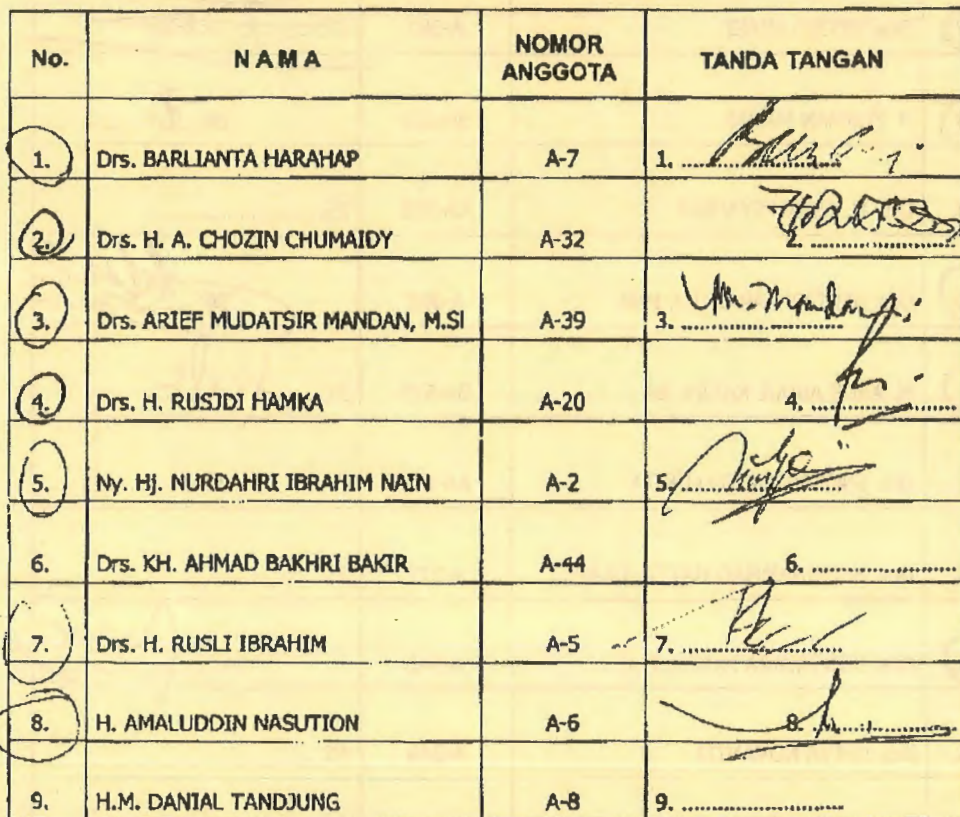 No. NAMA NOMOR ANGGOTA TANDA TANGAN
1. Drs. BARLIANTA HARAHAP A-7 1. ....................
2. Drs. H. A. CHOZIN CHUMAIDY A-32 2. ....................
3. Drs. ARIEF MUDATSIR MANDAN, M.SI A-39 3. ....................
4. Drs. H. RUSJDI HAMKA A-20 4. ....................
5. Ny. Hj. NURDAHRI IBRAHIM NAIN A-2 5. ....................
6. Drs. KH. AHMAD BAKHRI BAKIR A-44 6. ....................
7. Drs. H. RUSLI IBRAHIM A-5 7. ....................
8. H. AMALUDDIN NASUTION A-6 8. ....................
9. H.M. DANIAL TANDJUNG A-8 9. ....................